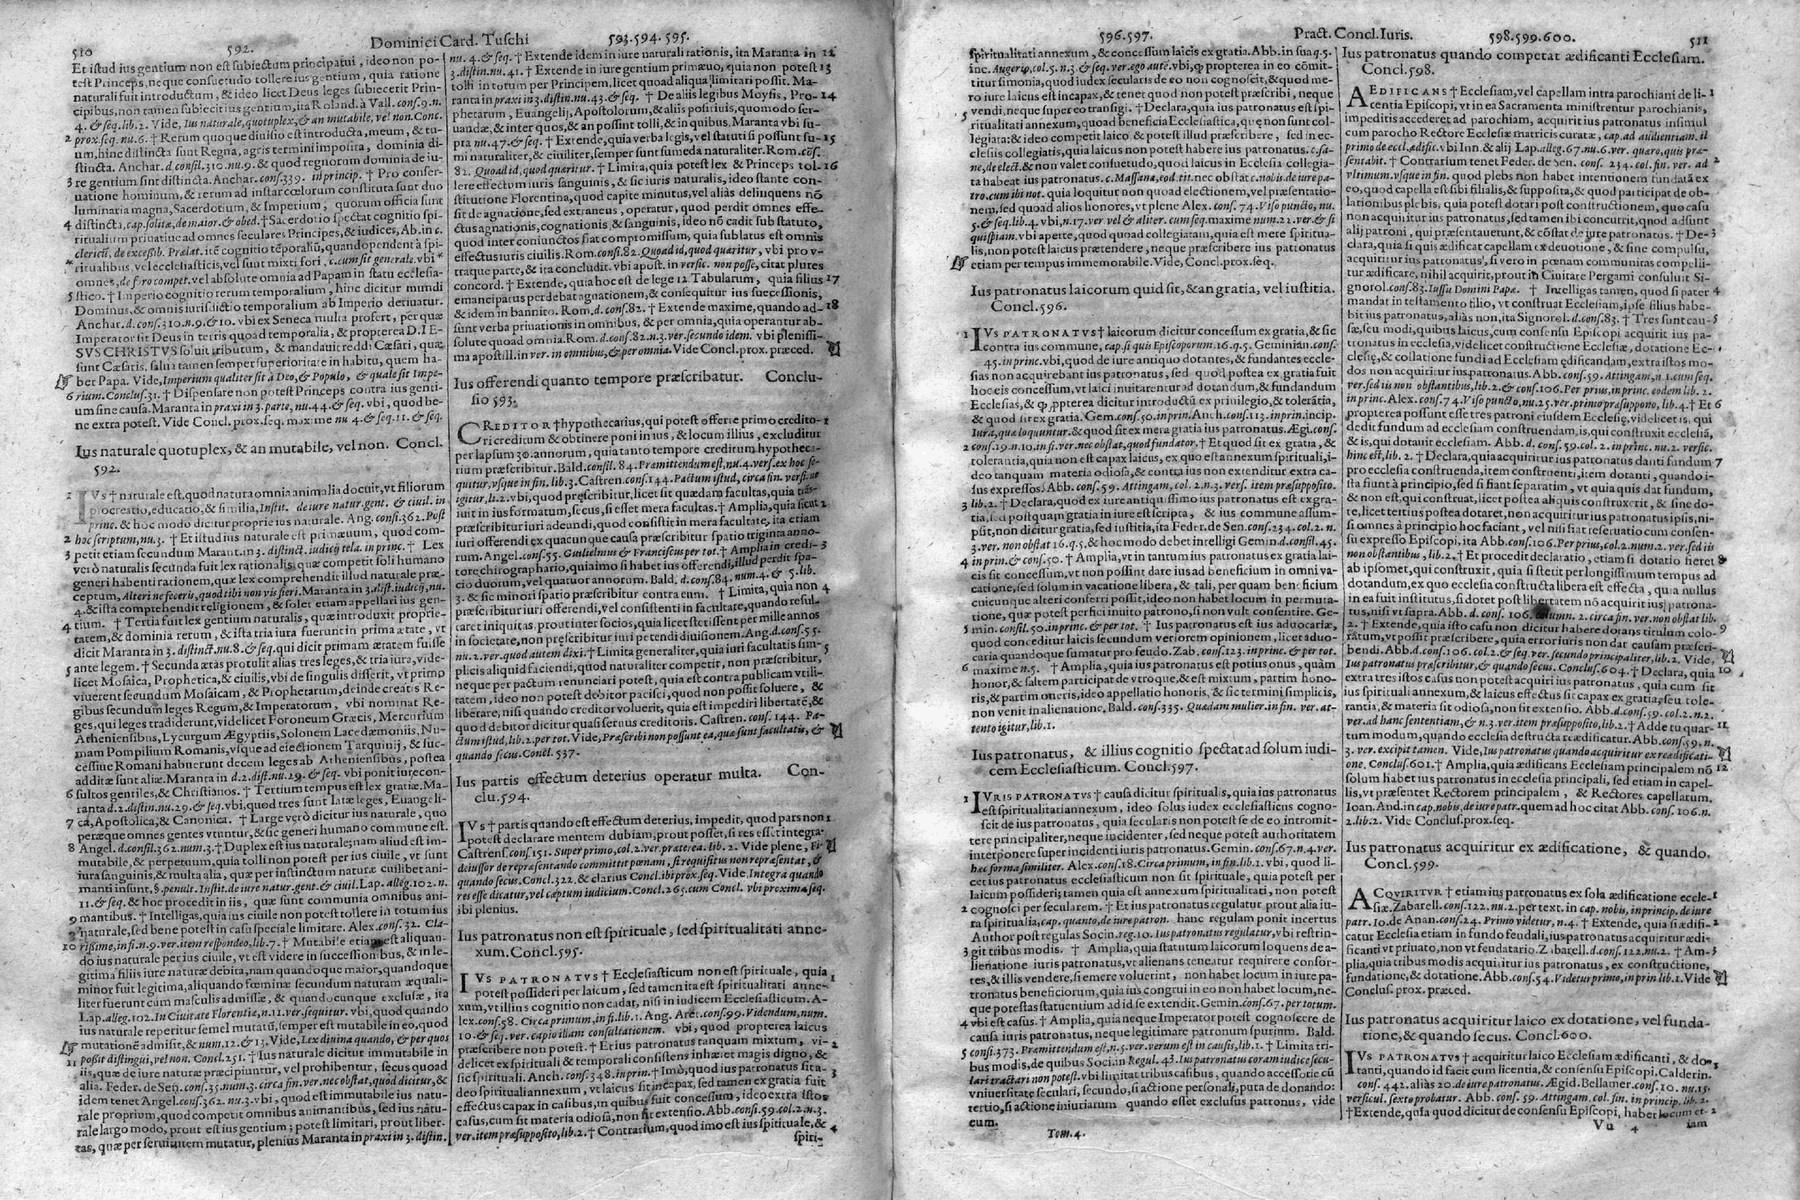 510
592.
Dominici Card. Tuschi
593.594.595.
Et istud ius gentium non est subiectum principatui, ideo non po-
test Princeps, neque consuetudo tollere ius gentium, quia ratione
naturali fuit introductum, & ideo licet Deus leges subiecerit Prin-
cipibus, non tamen subiecit ius gentium, ita Roland. à Vall. cons. 9. n.
4. & seq. lib. 2. Vide, Ius naturale, quotuplex, & an mutabile, vel non. Conc.
2 prox. seq. nu. 6. † Rerum quoque diuisio est introducta, meum, & tu-
um, hinc distincta sunt Regna, agris termini imposita, dominia di-
stincta. Anchar. d. consil. 310. nu. 9. & quod regnorum dominia de iu-
3 re gentium sint distincta. Anchar. cons. 339. in princip. † Pro conser-
uatione hominum, & rerum ad instar cœlorum constituta sunt duo
luminaria magna, Sacerdotium, & Imperium, quorum officia sunt
4 distincta, cap. solitæ, de maior. & obed. † Sacerdotio spectat cognitio spi-
ritualium priuatiue ad omnes seculares Principes, & iudices, Ab. in c.
clerici, de excessib. Prælat. itē cognitio tēporaliū, quando pendent à spi-
* ritualibus, vel ecclesiasticis, vel sunt mixti fori, c. cum sit generale. vbi *
omnes, de foro compet. vel absolute omnia ad Papam in statu ecclesia-
5 stico. † Imperio cognitio rerum temporalium, hinc dicitur mundi
Dominus, & omnis iurisdictio temporalium ab Imperio deriuatur.
Anchar. d. cons. 310. n. 9. & 10. vbi ex Seneca multa profert, per quæ
Imperator sit Deus in terris quoad temporalia, & propterea D. IE-
SVS CHRISTVS soluit tributum, & mandauit reddi Cæsari, quæ
sunt Cæsaris, salua tamen semper superioritate in habitu, quem ha-
bet Papa. Vide, Imperium qualiter sit à Deo, & Populo, & quale sit Impe-
6 rium. Conclus. 31. † Dispensare non potest Princeps contra ius genti-
um sine causa. Maranta in praxi in 3. parte, nu. 44. & seq. vbi, quod be-
ne extra potest. Vide Concl. prox. seq. maxime nu 4. & seq. 11. & seq.
Ius naturale quotuplex, & an mutabile, vel non. Concl.
592.
1 IVS † naturale est, quod natura omnia animalia docuit, vt filiorum
procreatio, educatio, & similia, Instit. de iure natur. gent. & ciuil. in
princ. & hoc modo dicitur proprie ius naturale. Ang. consi. 362. Post
2 hoc scriptum, nu. 3. † Et istud ius naturale est primæuum, quod com-
3 petit etiam secundum Marant. in 3. distinct. iudicij tela. in princ. † Lex
verò naturalis secunda fuit lex rationalis, quæ competit soli humano
generi habenti rationem, quæ lex comprehendit illud naturale præ-
ceptum, Alteri ne feceris, quod tibi non vis fieri. Maranta in 3. dist. iudicij, nu.
4. & ista comprehendit religionem, & solet etiam appellari ius gen-
4 tium. † Tertia fuit lex gentium naturalis, quæ introduxit proprie-
tatem, & dominia rerum, & ista tria iura fuerunt in prima ætate, vt
dicit Maranta in 3. distinct. nu. 8. & seq. qui dicit primam ætatem fuisse
5 ante legem. † Secunda ætas protulit alias tres leges, & tria iura, vide-
licet Mosaica, Prophetica, & ciuilis, vbi de singulis disserit, vt primo
viuerent secundum Mosaicam, & Prophetarum, deinde creatis Re-
gibus secundum leges Regum, & Imperatorum, vbi nominat Re-
ges, qui leges tradiderunt, videlicet Foroneum Græcis, Mercurium
Atheniensibus, Lycurgum Ægyptiis, Solonem Lacedæmoniis, Nu-
mam Pompilium Romanis, vsque ad eiectionem Tarquinij, & suc-
cessiue Romani habuerunt decem leges ab Atheniensibus, postea
additæ sunt aliæ. Maranta in d. 2. dist. nu. 29. & seq. vbi ponit iurecon-
6 sultos gentiles, & Christianos. † Tertium tempus est legis gratiæ. Ma-
ranta d. 2. distin. nu. 29. & seq. vbi, quod tres sunt latæ leges, Euangeli-
7 ca, Apostolica, & Canonica. † Large verò dicitur ius naturale, quo
peræque omnes gentes vtuntur, & sic generi humano commune est.
8 Angel. d. consil. 362. num. 3. † Duplex est ius naturale; nam aliud est im-
mutabile, & perpetuum, quia tolli non potest per ius ciuile, vt sunt
iura sanguinis, & multa alia, quæ per instinctum naturæ cuilibet ani-
manti insunt, §. penult. Instit. de iure natur. gent. & ciuil. Lap. alleg. 102. n.
11. & seq. & hoc procedit in iis, quæ sunt communia omnibus ani-
9 mantibus. † Intelligas, quia ius ciuile non potest tollere in totum ius
naturale, sed bene potest in casu speciale limitare. Alex. cons. 32. Cla-
10 rissime, in fi. n. 9. ver. item respondeo, lib. 7. † Mutabile etiam est aliquan-
do ius naturale per ius ciuile, vt est videre in successionibus, & in le-
gitima filiis iure naturæ debita, nam quandoque maior, quandoque
minor fuit legitima, aliquando fœminæ secundum naturam æquali-
liter fuerunt cum masculis admissæ, & quandocunque exclusæ, ita
Lap. alleg. 102. In Ciuitate Florentiæ, n. 11. ver. sequitur. vbi, quod quando
ius naturale reperitur semel mutatū, semper est mutabile in eo, quod
mutationē admisit, & num. 12. & 13. Vide, Lex diuina quando, & per quos
possit distingui, vel non. Concl. 251. † Ius naturale dicitur immutabile in
11 iis, quæ de iure naturæ præcipiuntur, vel prohibentur, secus quoad
alia. Feder. de Sen. cons. 35. num. 3. circa fin. ver. nec obstat, quod dicitur, &
idem tenet Angel. cons. 362. nu. 3. vbi, quod est immutabile ius natu-
rale proprium, quod competit omnibus animantibus, sed ius natu-
rale largo modo, prout est ius gentium; potest limitari, prout liber-
tas, quæ per seruitutem mutatur, plenius Maranta in praxi in 3. distin.
nu. 4. & seq. † Extende idem in iure naturali rationis, ita Maranta in 12
3. distin. nu. 41. † Extende in iure gentium primæuo, quia non potest 13
tolli in totum per Principem, licet quoad aliqua limitari possit. Ma-
ranta in praxi in 3. distin. nu. 43. & seq. † De aliis legibus Moysis, Pro- 14
phetarum, Euangelij, Apostolorum, & aliis positiuis, quomodo ser-
uandæ, & inter quos, & an possint tolli, & in quibus. Maranta vbi su-
pra nu. 47. & seq. † Extende, quia verba legis, vel statuti si possunt su- 15
mi naturaliter, & ciuiliter, semper sunt sumēda naturaliter. Rom. cōs.
82. Quod id, quod quæritur. † Limita, quia potest lex & Princeps tol- 16
lere effectum iuris sanguinis, & sic iuris naturalis, ideo stante con-
stitutione Florentina, quod capite minutus, vel aliàs delinquens nō
sit de agnatione, sed extraneus, operatur, quod perdit omnes effe-
ctus agnationis, cognationis, & sanguinis, ideo nō cadit sub statuto,
quod inter coniunctos fiat compromissum, quia sublatus est omnis
effectus iuris ciuilis. Rom. consi. 82. Quod ad id, quod quæritur, vbi pro v-
traque parte, & ita concludit. vbi apost. in versic. non posse, citat plures
concord. † Extende, quia hoc est de lege 12 Tabularum, quia filius 17
emancipatus perdebat agnationem, & consequitur ius successionis,
& idem in bannito. Rom. d. cons. 82. † Extende maxime, quando ad- 18
sunt verba priuationis in omnibus, & per omnia, quia operantur ab-
solute quoad omnia. Rom. d. cons. 82. n. 3. ver. secundo idem. vbi plenissi-
ma apostill. in ver. in omnibus, & per omnia. Vide Concl. prox. præced.
Ius offerendi quanto tempore præscribatur. Conclu-
sio 593.
CREDITOR † hypothecarius, qui potest offerre primo credito- 1
ri creditum & obtinere poni in ius, & locum illius, excluditur
per lapsum 30. annorum, quia tanto tempore creditum hypotheca-
rium præscribitur. Bald. consil. 84. Præmittendum est, nu. 4. vers. ex hoc se-
quitur, vsque in fin. lib. 3. Castren. cons. 144. Pactum istud, circa fin. versi. ut
igitur, li. 2. vbi, quod præscribitur, licet sit quædam facultas, quia tran-
siuit in ius formatum, secus, si esset mera facultas. † Amplia, quia sicut 2
præscribitur iuri adeundi, quod consistit in mera facultate, ita etiam
iuri offerendi ex quacunque causa præscribitur spatio triginta anno-
rum. Angel. cons. 55. Gulielmus & Franciscus per tot. † Amplia in credi- 3
tore chirographario, quia imo si habet ius offerendi, illud perdit spa-
cio duorum, vel quatuor annorum. Bald. d. cons. 84. num. 4. & 5. lib.
3. & sic minori spatio præscribitur contra eum. † Limita, quia non 4
præscribitur iuri offerendi, vel consistenti in facultate, quando resul-
taret iniquitas. prout inter socios, quia licet stetissent per mille annos
in societate, non præscribitur iuri petendi diuisionem. Ang. d. cons. 55.
nu. 2. ver. quod autem dixi. † Limita generaliter, quia iuri facultatis sim- 5
plicis aliquid faciendi, quod naturaliter competit, non præscribitur,
neque per pactum renunciari potest, quia est contra publicam vtili-
tatem, ideo non potest debitor pacisci, quod non possit soluere, &
liberare, nisi quando creditor voluerit, quia est impediri libertatē, &
quod debitor dicitur quasi seruus creditoris. Castren. cons. 144. Pa-
ctum istud, lib. 2. per tot. Vide, Præscribi non possunt ea, quæ sunt facultatis, &
quando secus. Concl. 537.
Ius partis effectum deterius operatur multa. Con-
clu. 594.
IVS † partis quando est effectum deterius, impedit, quod pars non 1
potest declarare mentem dubiam, prout posset, si res esset integra.
Castrens. cons. 151. Super primo, col. 2. ver. præterea. lib. 2. Vide plene, Fi-
deiussor de repræsentando committit pœnam, si requisitus non repræsentat, &
quando secus. Concl. 322. & clarius Concl. ibi prox. seq. Vide, Integra quando
res esse dicatur, vel captum iudicium. Concl. 265. cum Concl. vbi proxima seq.
ibi plenius.
Ius patronatus non est spirituale, sed spiritualitati anne-
xum. Concl. 595.
IVS PATRONATVS † Ecclesiasticum non est spirituale, quia 1
potest possideri per laicum, sed tamen ita est spiritualitati anne-
xum, vt illius cognitio non cadat, nisi in iudicem Ecclesiasticum. A-
lex. cons. 58. Circa primum, in fi. lib. 1. Ang. Aret. cons. 99. Videndum, num.
10. & seq. ver. capio illam consultationem. vbi, quod propterea laicus
præscribere non potest. † Et ius patronatus tanquam mixtum, vi- 2
delicet ex spirituali & temporali consistens inhæret magis digno, &
sic spirituali. Anch. cons. 348. in prin. † Imò, quod ius patronatus sit a- 3
deo spirituali annexum, vt laicus sit incapax, sed tamen ex gratia fuit
effectus capax in casibus, in quibus fuit concessum, ideo extra istos
casus, cum sit materia odiosa, non fit extensio. Abb. consi. 59. col. 2. n. 3.
ver. item præsupposito, lib. 2. † Contrarium, quod imo est ius spirituale, & 4
spiri-
596.597.
Pract. Concl. Iuris.
598.599.600.
511
spiritualitati annexum, & concessum laicis ex gratia. Abb. in sua q. 5.
inc. Augerio, col. 5. n. 3. & seq. ver. ego autē. vbi, qp propterea in eo cōmit-
titur simonia, quod iudex secularis de eo non cognoscit, & quod me-
ro iure laicus est incapax, & tenet quod non potest præscribi, neque
vendi, neque super eo transigi. † Declara, quia ius patronatus est spi-
5 ritualitati annexum, quoad beneficia Ecclesiastica, quę non sunt col-
legiata: & ideo competit laico & potest illud præscribere, sed in ec-
clesiis collegiatis, quia laicus non potest habere ius patronatus. c. sa-
ne, de elect. & non valet consuetudo, quod laicus in Ecclesia collegia-
ta habeat ius patronatus. c. Massana, eod. tit. nec obstat c. nobis, de iure pa-
tro. cum ibi not. quia loquitur non quoad electionem, vel præsentatio-
nem, sed quoad alios honores, vt plene Alex. cons. 74. Viso puncto, nu.
5. & seq. lib. 4. vbi, n. 17. ver vel & aliter. cum seq. maxime num. 21. ver. & si
quispiam. vbi aperte, quod quoad collegiatam, quia est mere spiritua-
lis, non potest laicus prætendere, neque præscribere ius patronatus
etiam per tempus immemorabile. Vide, Concl. prox. seq.
Ius patronatus laicorum quid sit, & an gratia, vel iustitia.
Concl. 596.
1 IVS PATRONATVS † laicorum dicitur concessum ex gratia, & sic
contra ius commune, cap. si quis Episcoporum. 16. q. 5. Geminian. cons.
45. in prin. vbi, quod de iure antiquo dotantes, & fundantes eccle-
sias non acquirebant ius patronatus, sed quod postea ex gratia fuit
hoc eis concessum, vt laici inuitarentur ad dotandum, & fundandum
Ecclesias, & qp ppterea dicitur introductū ex priuilegio, & tolerātia,
& quod sit ex gratia. Gem. cons. 50. in prin. Anch. cons. 113. in prin. incip.
Iura, quæ loquuntur. & quod sit ex mera gratia ius patronatus. Ægi. cons.
2 cons. 19. n. 10. in fi. ver. nec obstat, quod fundator. † Et quod sit ex gratia, &
tolerantia, quia non est capax laicus, ex quo est annexum spirituali, i-
deo tanquam materia odiosa, & contra ius non extenditur extra ca-
sus expressos. Abb. cons. 59. Attingam, col. 2. n. 3. vers. item præsupposito.
3 lib. 2. † Declara, quod ex iure antiquissimo ius patronatus est ex gra-
tia, sed postquam gratia in iure est scripta, & ius commune assum-
psit, non dicitur gratia, sed iustitia, ita Feder. de Sen. cons. 234. col. 2. n.
3. ver. non obstat 16. q. 5. & hoc modo debet intelligi Gemin. d. consil. 45.
4 in prin. & cons. 50. † Amplia, vt in tantum ius patronatus ex gratia lai-
cis sit concessum, vt non possint dare ius ad beneficium in omni va-
catione, sed solum in vacatione libera, & tali, per quam beneficium
cuicunque alteri conferri possit, ideo non habet locum in permuta-
tione, quæ potest perfici inuito patrono, si non vult consentire. Ge-
5 min. consil. 50. in princ. & per tot. † Ius patronatus est ius aduocatiæ,
quod conceditur laicis secundum veriorem opinionem, licet aduo-
catia quandoque sumatur pro feudo. Zab. cons. 123. in princ. & per tot.
6 maxime n. 5. † Amplia, quia ius patronatus est potius onus, quàm
honor, & saltem participat de vtroque, & est mixtum, partim hono-
ris, & partim oneris, ideo appellatio honoris, & sic termini simplicis,
non venit in alienatione. Bald. cons. 335. Quadam mulier. in fin. ver. at-
tento igitur, lib. 1.
Ius patronatus, & illius cognitio spectat ad solum iudi-
cem Ecclesiasticum. Concl. 597.
1 IVRIS PATRONATVS † causa dicitur spiritualis, quia ius patronatus
est spiritualitati annexum, ideo solus iudex ecclesiasticus cogno-
scit de ius patronatus, quia secularis non potest se de eo intromit-
tere principaliter, neque incidenter, sed neque potest authoritatem
interponere super incidenti iuris patronatus. Gemin. cons. 67. n. 4. ver.
hac forma similiter. Alex. cons. 18. Circa primum, in fin. lib. 1. vbi, quod li-
cet ius patronatus ecclesiasticum non sit spirituale, quia potest per
laicum possideri; tamen quia est annexum spiritualitati, non potest
2 cognosci per secularem. † Et ius patronatus regulatur prout alia iu-
ra spiritualia, cap. quanto, de iure patron. hanc regulam ponit incertus
Author post regulas Socin. reg. 10. Ius patronatus regulatur, vbi restrin-
3 git tribus modis. † Amplia, quia statutum laicorum loquens de a-
lienatione iuris patronatus, vt alienans teneatur requirere consor-
tes, & illis vendere, si emere voluerint, non habet locum in iure pa-
tronatus beneficiorum, quia ius congrui in eo non habet locum, ne-
que potestas statuentium ad id se extendit. Gemin. cons. 67. per totum.
4 vbi est casus. † Amplia, quia neque Imperator potest cognoscere de
causa iuris patronatus, neque legitimare patronum spurium. Bald.
5 consi. 373. Præmittendum est, n. 5. ver. verum est in causis, lib. 1. † Limita tri-
bus modis, de quibus Soci. in Regul. 43. Ius patronatus coram iudice secu-
lari tractari non potest. vbi limitat tribus casibus, quando accessorie cū
vniuersitate seculari, secundo, si actione personali, puta de donando:
tertio, si actione iniuriarum quando esset exclusus patronus, vide
eum.
Tom. 4.
Ius patronatus quando competat ædificanti Ecclesiam.
Concl. 598.
AEDIFICANS † Ecclesiam, vel capellam intra parochiani de li- 1
centia Episcopi, vt in ea Sacramenta ministrentur parochianis,
impeditis accedere ad parochiam, acquirit ius patronatus insimul
cum parocho Rectore Ecclesiæ matricis curatæ, cap. ad audientiam. il
primo de eccl. ædific. vbi Inn. & alij Lap. alleg. 67. nu. 6. ver. quæro, quis præ-
sentabit. † Contrarium tenet Feder. de Sen. cons. 234. col. fin. ver. ad 2
vltimum. vsque in fin. quod plebs non habet intentionem fundatā ex
eo, quod capella est sibi filialis, & supposita, & quod participat de ob-
lationibus plebis, quia potest dotari post constructionem, quo casu
non acquiritur ius patronatus, sed tamen ibi concurrit, quod adsunt
alij patroni, qui præsentauerunt, & cōstat de iure patronatus. † De- 3
clara, quia si quis ædificat capellam ex deuotione, & sine compulsu,
acquiritur ius patronatus, si vero in pœnam communitas compelli-
tur ædificare, nihil acquirit, prout in Ciuitate Pergami consuluit Si-
gnorol. cons. 83. Iussu Domini Papæ. † Intelligas tamen, quod si pater 4
mandat in testamento filio, vt construat Ecclesiam, ipse filius habe-
bit ius patronatus, aliàs non, ita Signorel. d. cons. 83. † Tres sunt cau- 5
sæ, seu modi, quibus laicus, cum consensu Episcopi acquirit ius pa-
tronatus in ecclesia, videlicet constructione Ecclesiæ, dotatione Ec-
clesię, & collatione fundi ad Ecclesiam ędificandam, extra istos mo-
dos non acquiritur ius patronatus. Abb. cons. 59. Attingam, n. 1. cum seq.
ver. sed iis non obstantibus, lib. 2. & cons. 106. Per prius, in princ. eodem lib. 2.
in princ. Alex. 74. Viso puncto, nu. 25. ver. primo præsuppono, lib. 4. † Et 6
propterea possunt esse tres patroni eiusdem Ecclesię, videlicet is, qui
dedit fundum ad ecclesiam construendam, is, qui construxit ecclesiā,
& is, qui dotauit ecclesiam. Abb. d. cons. 59. col. 2. in princ. nu. 2. versic.
hinc est, lib. 2. † Declara, quia acquiritur ius patronatus danti fundum 7
pro ecclesia construenda, item construenti, item dotanti, quando i-
sta fiunt à principio, sed si fiant separatim, vt quia quis dat fundum,
& non est, qui construat, licet postea aliquis construxerit, & sine do-
te, licet tertius postea dotaret, non acquiritur ius patronatus ipsis, ni-
si omnes à principio hoc faciant, vel nisi fiat reseruatio cum consen-
su expresso Episcopi, ita Abb. cons. 106. Per prius, col. 2. num. 2. ver. sed iis
non obstantibus, lib. 2. † Et procedit declaratio, etiam si dotatio fieret 8
ab ipsomet, qui construxit, quia si stetit per longissimum tempus ad
dotandum, ex quo ecclesia constructa libera est effecta, quia nullus
in ea fuit institutus, si dotet post libertatem nō acquirit ius patrona-
tus, nisi vt supra. Abb. d. cons. 106. column. 2. circa fin. ver. non obstat lib.
2. † Extende, quia isto casu non dicitur habere dotans titulum colo- 9
ratum, vt possit præscribere, quia error iuris non dat causam præscri-
bendi. Abb. d. cons. 106. col. 2. & seq. ver. secundo principaliter, lib. 2. Vide,
Ius patronatus præscribitur, & quando secus. Conclus. 604. † Declara, quia 10
extra istos casus non potest acquiri ius patronatus, quia cum sit
ius spirituali annexum, & laicus effectus sit capax ex gratia, seu tole-
rantia, & materia sit odiosa, non est extendenda. Abb. d. cons. 59. col. 2. n. 2.
ver. ad hanc sententiam, & n. 3. ver. item præsupposito, lib. 2. † Adde tu quar- 11
tum modum, quando ecclesia destructa reædificatur. Abb. cons. 59. n.
3. ver. excipit tamen. Vide, Ius patronatus quando acquiritur ex reædificati-
one. Conclus. 601. † Amplia, quia ædificans Ecclesiam principalem nō 12
solum habet ius patronatus in ecclesia principali, sed etiam in capel-
lis, vt præsentet Rectorem principalem, & Rectores capellarum.
Ioan. And. in cap. nobis, de iure patr. quem ad hoc citat Abb. cons. 106. n.
2. lib. 2. Vide Conclus. prox. seq.
Ius patronatus acquiritur ex ædificatione, & quando.
Concl. 599.
ACQVIRITVR † etiam ius patronatus ex sola ædificatione eccle- 1
siæ. Zabarell. cons. 122. nu. 2. per text. in cap. nobis, in princip. de iure
patr. Io. de Anan. cons. 24. Primo videtur, n. 4. † Extende, quia si ædifi- 2
catur Ecclesia etiam in fundo feudali, ius patronatus acquiritur ædi-
ficanti vt priuato, non vt feudatario. Zabarell. d. cons. 122. nu. 2. † Am- 3
plia, quia tribus modis acquiritur ius patronatus, ex constructione,
fundatione, & dotatione. Abb. cons. 54. Videtur prim, in prin. lib. 1. Vide
Conclus. prox. præced.
Ius patronatus acquiritur laico ex dotatione, vel funda-
tione, & quando secus. Concl. 600.
IVS PATRONATVS † acquiritur laico Ecclesiam ædificanti, & do- 1
tanti, quando id facit cum licentia, & consensu Episcopi. Calderin.
cons. 442. aliàs 20. de iure patronatus. Ægid. Bellamer. cons. 10. nu. 15.
versicul. sexto probatur. Abb. cons. 59. Attingam. col. fin. in princip. lib. 2.
† Extende, quia quod dicitur de consensu Episcopi, habet locum et- 2
Vu 4
iam